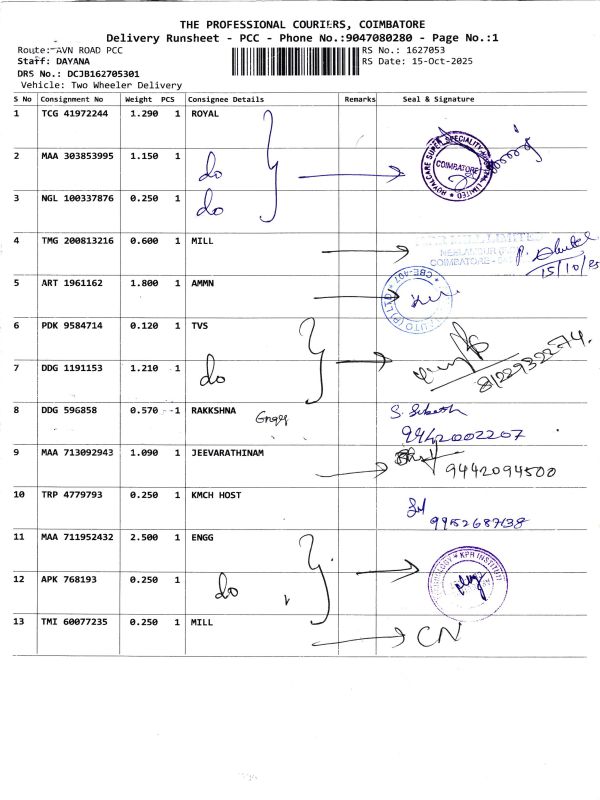 THE PROFESSIONAL COURIERS, COIMBATORE
Delivery Runsheet - PCC - Phone No.:9047080280 - Page No.:1
Route: AVN ROAD PCC RS No.: 1627053
Staff: DAYANA RS Date: 15-Oct-2025
DRS No.: DCJB162705301
Vehicle: Two Wheeler Delivery
S No Consignment No Weight PCS Consignee Details Remarks Seal & Signature
1 TCG 41972244 1.290 1 ROYAL
2 MAA 303853995 1.150 1 do COIMBATORE
3 NGL 100337876 0.250 1 do
4 TMG 200813216 0.600 1 MILL
15/10/25
5 ART 1961162 1.800 1 AMMN
6 PDK 9584714 0.120 1 TVS
7 DDG 1191153 1.210 1 do 8122932274.
8 DDG 596858 0.570 1 RAKKSHNA Engg
9442002207
9 MAA 713092943 1.090 1 JEEVARATHINAM 9442094500
10 TRP 4779793 0.250 1 KMCH HOST
9952687138
11 MAA 711952432 2.500 1 ENGG
12 APK 768193 0.250 1 do
13 TMI 60077235 0.250 1 MILL CN